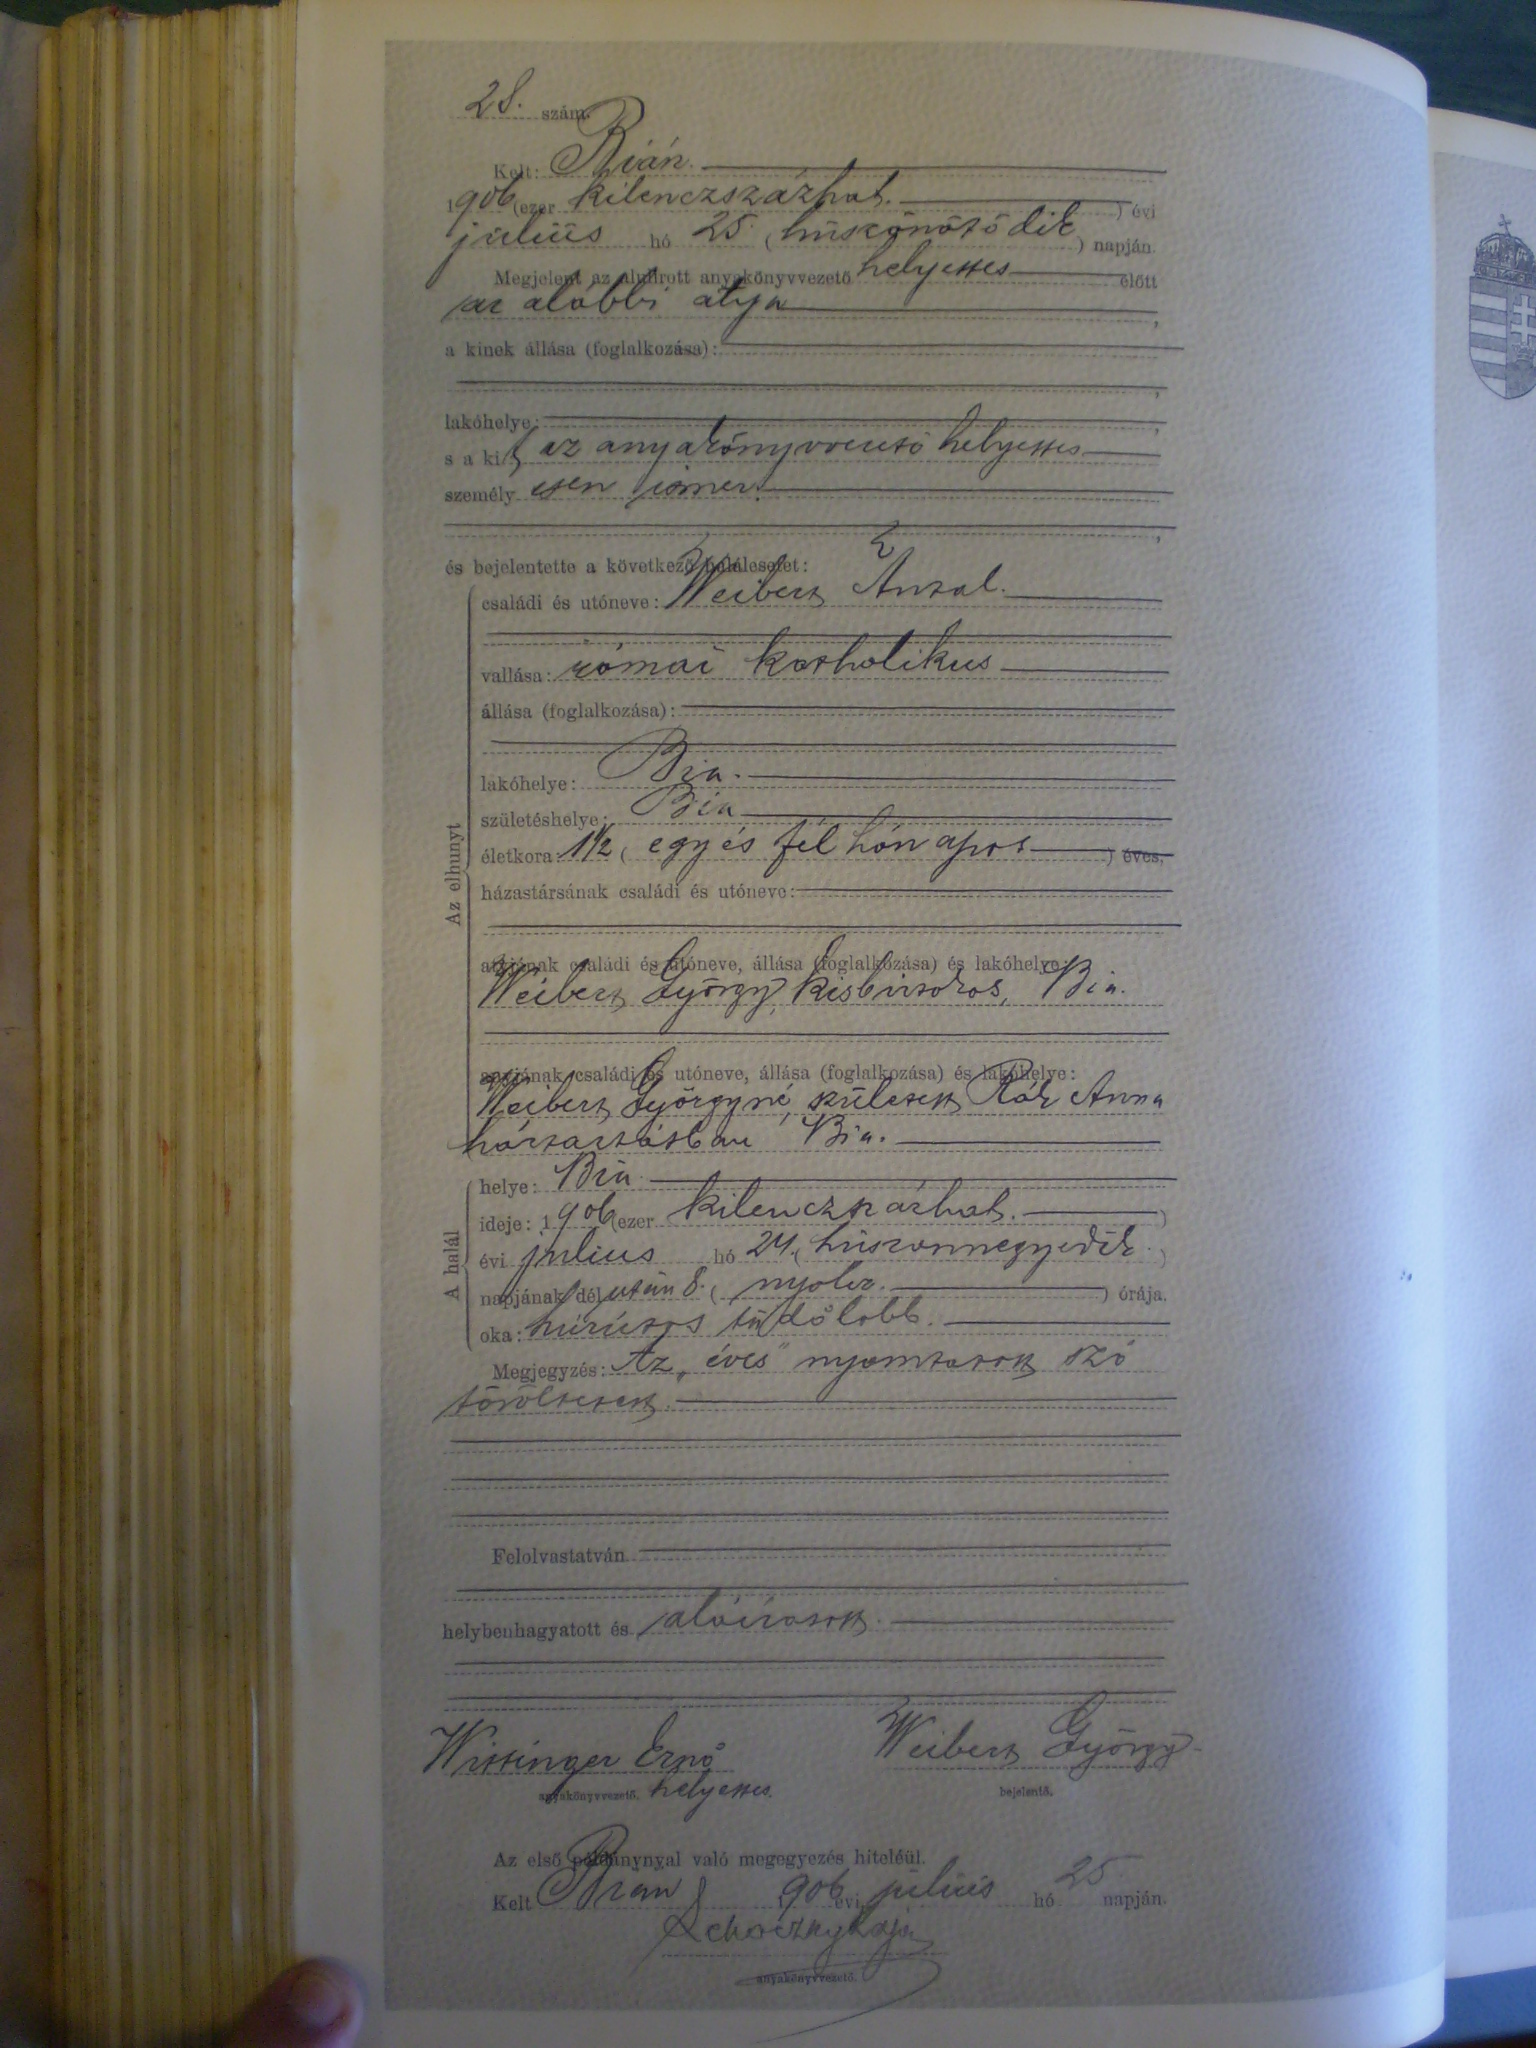 28. szám.
Kelt: Bián.
1906 (ezer kilenczszázhat. ) évi
július hó 25. (huszonötödik ) napján.
Megjelent az alulírott anyakönyvvezető helyettes előtt
az alábbi atya ,
a kinek állása (foglalkozása):
,
lakóhelye: ,
s a kit az anyakönyvvezető helyettes
személy esen ismer.
,
és bejelentette a következő halálesetet:
családi és utóneve: Weibert Antal.
vallása: római katholikus
állása (foglalkozása):
lakóhelye: Bia.
születéshelye: Bia
életkora: 1 1/2 ( egy és fél hónapos ) éves,
házastársának családi és utóneve:
Az elhunyt
atyjának családi és utóneve, állása (foglalkozása) és lakóhelye:
Weibert György, kisbirtokos, Bia.
anyjának családi és utóneve, állása (foglalkozása) és lakóhelye:
Weibert Györgyné, született Anna
háztartásban Bia.
helye: Bia
ideje: 1906 (ezer kilenczszázhat. )
A halál
évi július hó 24. (huszonnegyedik. )
napjának dél után 8. ( nyolcz. ) órája,
oka: hurutos tüdőlobb.
Megjegyzés: Az „éves" nyomtatott szó
töröltetett.
Felolvastatván
helybenhagyatott és aláíratott.
Wittinger Ernő Weibert György
anyakönyvvezető. helyettes. bejelentő.
Az első példánynyal való megegyezés hiteléül.
Kelt Bián 1906 évi július hó 25 napján.
anyakönyvvezető.